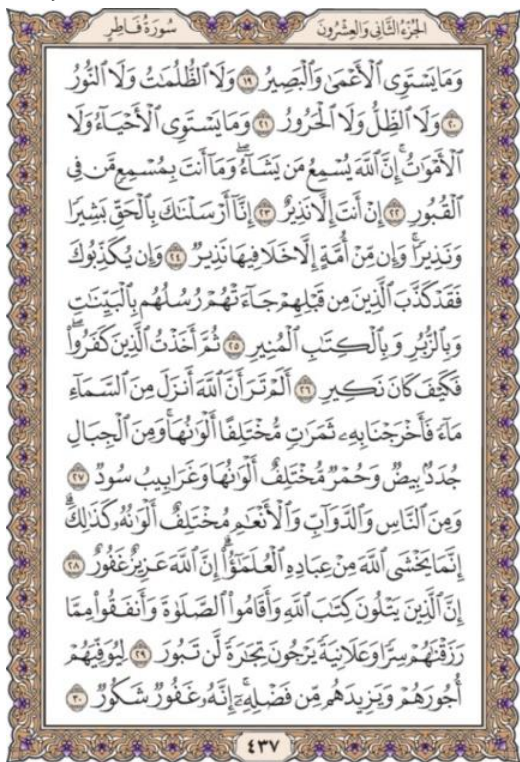 سُورَةُ فَاطِرٍ
الجُزْءُ الثَّانِي وَالعِشْرُونَ
وَمَا يَسْتَوِى ٱلْأَعْمَىٰ وَٱلْبَصِيرُ ١٩ وَلَا ٱلظُّلُمَٰتُ وَلَا ٱلنُّورُ
٢٠ وَلَا ٱلظِّلُّ وَلَا ٱلْحَرُورُ ٢١ وَمَا يَسْتَوِى ٱلْأَحْيَآءُ وَلَا
ٱلْأَمْوَٰتُ ۚ إِنَّ ٱللَّهَ يُسْمِعُ مَن يَشَآءُ ۖ وَمَآ أَنتَ بِمُسْمِعٍ مَّن فِى
ٱلْقُبُورِ ٢٢ إِنْ أَنتَ إِلَّا نَذِيرٌ ٢٣ إِنَّآ أَرْسَلْنَٰكَ بِٱلْحَقِّ بَشِيرًا
وَنَذِيرًا ۚ وَإِن مِّنْ أُمَّةٍ إِلَّا خَلَا فِيهَا نَذِيرٌ ٢٤ وَإِن يُكَذِّبُوكَ
فَقَدْ كَذَّبَ ٱلَّذِينَ مِن قَبْلِهِمْ جَآءَتْهُمْ رُسُلُهُم بِٱلْبَيِّنَٰتِ
وَبِٱلزُّبُرِ وَبِٱلْكِتَٰبِ ٱلْمُنِيرِ ٢٥ ثُمَّ أَخَذْتُ ٱلَّذِينَ كَفَرُوا۟ ۖ
فَكَيْفَ كَانَ نَكِيرِ ٢٦ أَلَمْ تَرَ أَنَّ ٱللَّهَ أَنزَلَ مِنَ ٱلسَّمَآءِ
مَآءً فَأَخْرَجْنَا بِهِۦ ثَمَرَٰتٍ مُّخْتَلِفًا أَلْوَٰنُهَا ۚ وَمِنَ ٱلْجِبَالِ
جُدَدٌۢ بِيضٌ وَحُمْرٌ مُّخْتَلِفٌ أَلْوَٰنُهَا وَغَرَابِيبُ سُودٌ ٢٧
وَمِنَ ٱلنَّاسِ وَٱلدَّوَآبِّ وَٱلْأَنْعَٰمِ مُخْتَلِفٌ أَلْوَٰنُهُۥ كَذَٰلِكَ ۗ
إِنَّمَا يَخْشَى ٱللَّهَ مِنْ عِبَادِهِ ٱلْعُلَمَٰٓؤُا۟ ۗ إِنَّ ٱللَّهَ عَزِيزٌ غَفُورٌ ٢٨
إِنَّ ٱلَّذِينَ يَتْلُونَ كِتَٰبَ ٱللَّهِ وَأَقَامُوا۟ ٱلصَّلَوٰةَ وَأَنفَقُوا۟ مِمَّا
رَزَقْنَٰهُمْ سِرًّا وَعَلَانِيَةً يَرْجُونَ تِجَٰرَةً لَّن تَبُورَ ٢٩ لِيُوَفِّيَهُمْ
أُجُورَهُمْ وَيَزِيدَهُم مِّن فَضْلِهِۦٓ ۚ إِنَّهُۥ غَفُورٌ شَكُورٌ ٣٠
٤٣٧